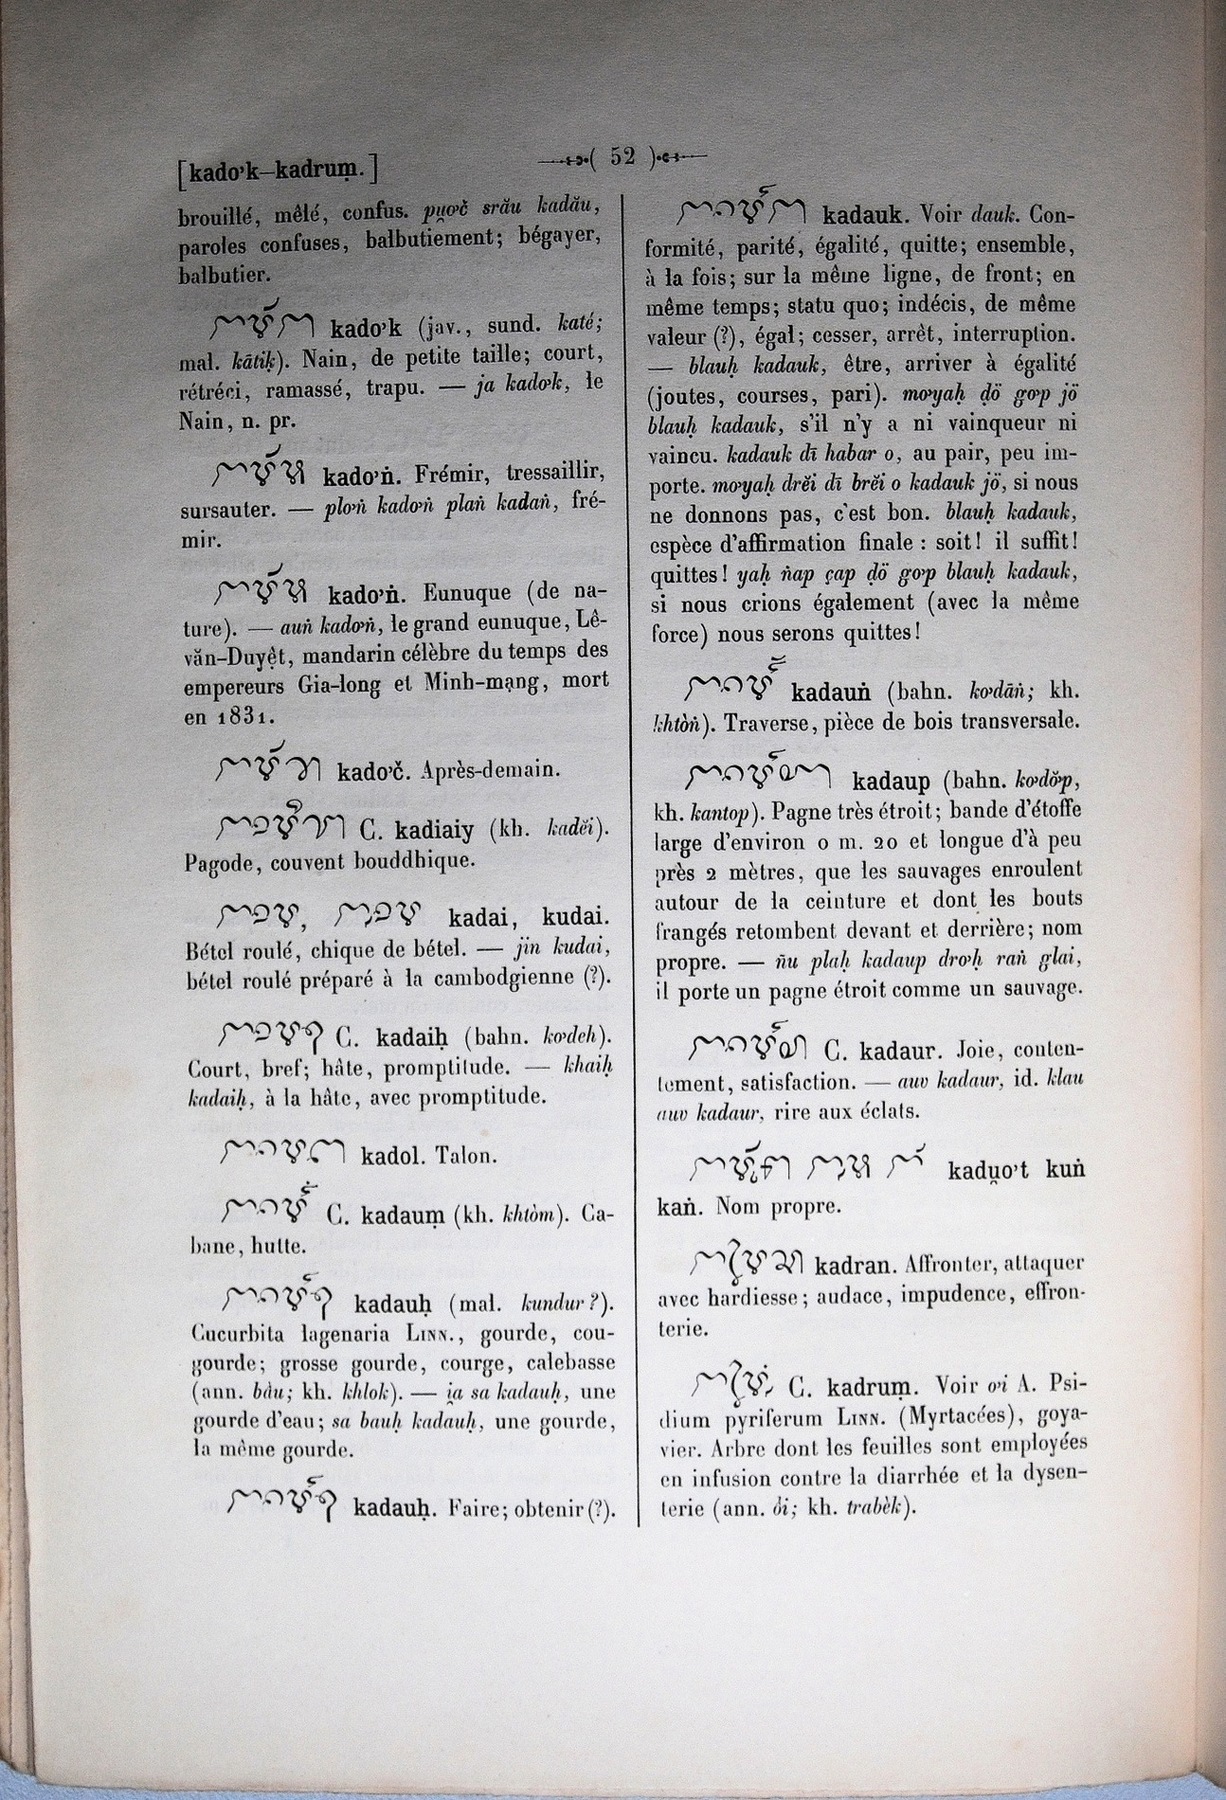 [kadơk–kadruṃ.]
( 52 )
brouillé, mêlé, confus. pu̯ơč srău kadău,
paroles confuses, balbutiement; bégayer,
balbutier.
kadơk (jav., sund. katé;
mal. kātiḳ). Nain, de petite taille; court,
rétréci, ramassé, trapu. — ja kadơk, le
Nain, n. pr.
kadơṅ. Frémir, tressaillir,
sursauter. — plơṅ kadơṅ plaṅ kadaṅ, fré-
mir.
kadơṅ. Eunuque (de na-
ture). — auṅ kadơṅ, le grand eunuque, Lê-
văn-Duyệt, mandarin célèbre du temps des
empereurs Gia-long et Minh-mạng, mort
en 1831.
kadơč. Après-demain.
C. kadiaiy (kh. kadĕi).
Pagode, couvent bouddhique.
kadai, kudai.
Bétel roulé, chique de bétel. — jin kudai,
bétel roulé préparé à la cambodgienne (?).
C. kadaiḥ (bahn. kơdeh).
Court, bref; hâte, promptitude. — khaiḥ
kadaiḥ, à la hâte, avec promptitude.
kadol. Talon.
C. kadauṃ (kh. khtòm). Ca-
bane, hutte.
kadauḥ (mal. kundur?).
Cucurbita lagenaria Linn., gourde, cou-
gourde; grosse gourde, courge, calebasse
(ann. bàu; kh. khlok). — i̯a sa kadauḥ, une
gourde d'eau; sa bauḥ kadauḥ, une gourde,
la même gourde.
kadauḥ. Faire; obtenir (?).
kadauk. Voir dauk. Con-
formité, parité, égalité, quitte; ensemble,
à la fois; sur la même ligne, de front; en
même temps; statu quo; indécis, de même
valeur (?), égal; cesser, arrêt, interruption.
— blauḥ kadauk, être, arriver à égalité
(joutes, courses, pari). mơyaḥ ḍö gơp jö
blauḥ kadauk, s'il n'y a ni vainqueur ni
vaincu. kadauk dī habar o, au pair, peu im-
porte. mơyaḥ drĕi dī brĕi o kadauk jö, si nous
ne donnons pas, c'est bon. blauḥ kadauk,
espèce d'affirmation finale : soit! il suffit!
quittes! yaḥ ñap çap ḍö gơp blauḥ kadauk,
si nous crions également (avec la même
force) nous serons quittes!
kadauṅ (bahn. kơdāṅ; kh.
khtòṅ). Traverse, pièce de bois transversale.
kadaup (bahn. kơdơ̆p,
kh. kantop). Pagne très étroit; bande d'étoffe
large d'environ 0 m. 20 et longue d'à peu
près 2 mètres, que les sauvages enroulent
autour de la ceinture et dont les bouts
frangés retombent devant et derrière; nom
propre. — ñu plaḥ kadaup drơḥ raṅ glai,
il porte un pagne étroit comme un sauvage.
C. kadaur. Joie, conten-
tement, satisfaction. — auv kadaur, id. klau
auv kadaur, rire aux éclats.
kadu̯ơt kuṅ
kaṅ. Nom propre.
kadran. Affronter, attaquer
avec hardiesse; audace, impudence, effron-
terie.
C. kadruṃ. Voir ơi A. Psi-
dium pyriferum Linn. (Myrtacées), goya-
vier. Arbre dont les feuilles sont employées
en infusion contre la diarrhée et la dysen-
terie (ann. ỏi; kh. trabèk).